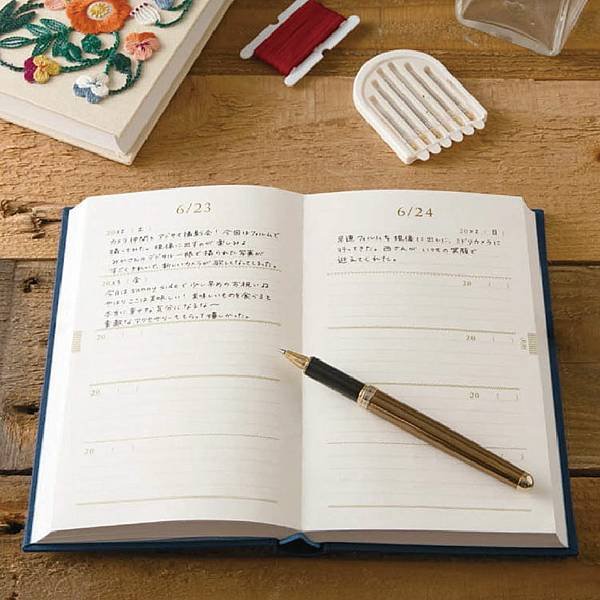 6/23
20XX （土）
カメラ仲間とアジサイ撮影会！今回はフィルムで
撮ってきた。現像に出すのが楽しみ♪
みかさんのデジタル一眼で撮られた写真が
すごくきれいで、新しいカメラが欲しくなってしまった。
20XX （金）
今日はsunny sideで少し早めのお祝い♪♪
やはりここは美味しい！美味しいものを食べると
本当に幸せな気分になるな〜
素敵なアクセサリーももらって嬉しかった。
20 （ ）
20 （ ）
20 （ ）
6/24
20XX （日）
早速フィルムを現像に出しに、ミドリカメラに
行ってきた。西さんがいつもの笑顔で
迎えてくれた。
20 （ ）
20 （ ）
20 （ ）